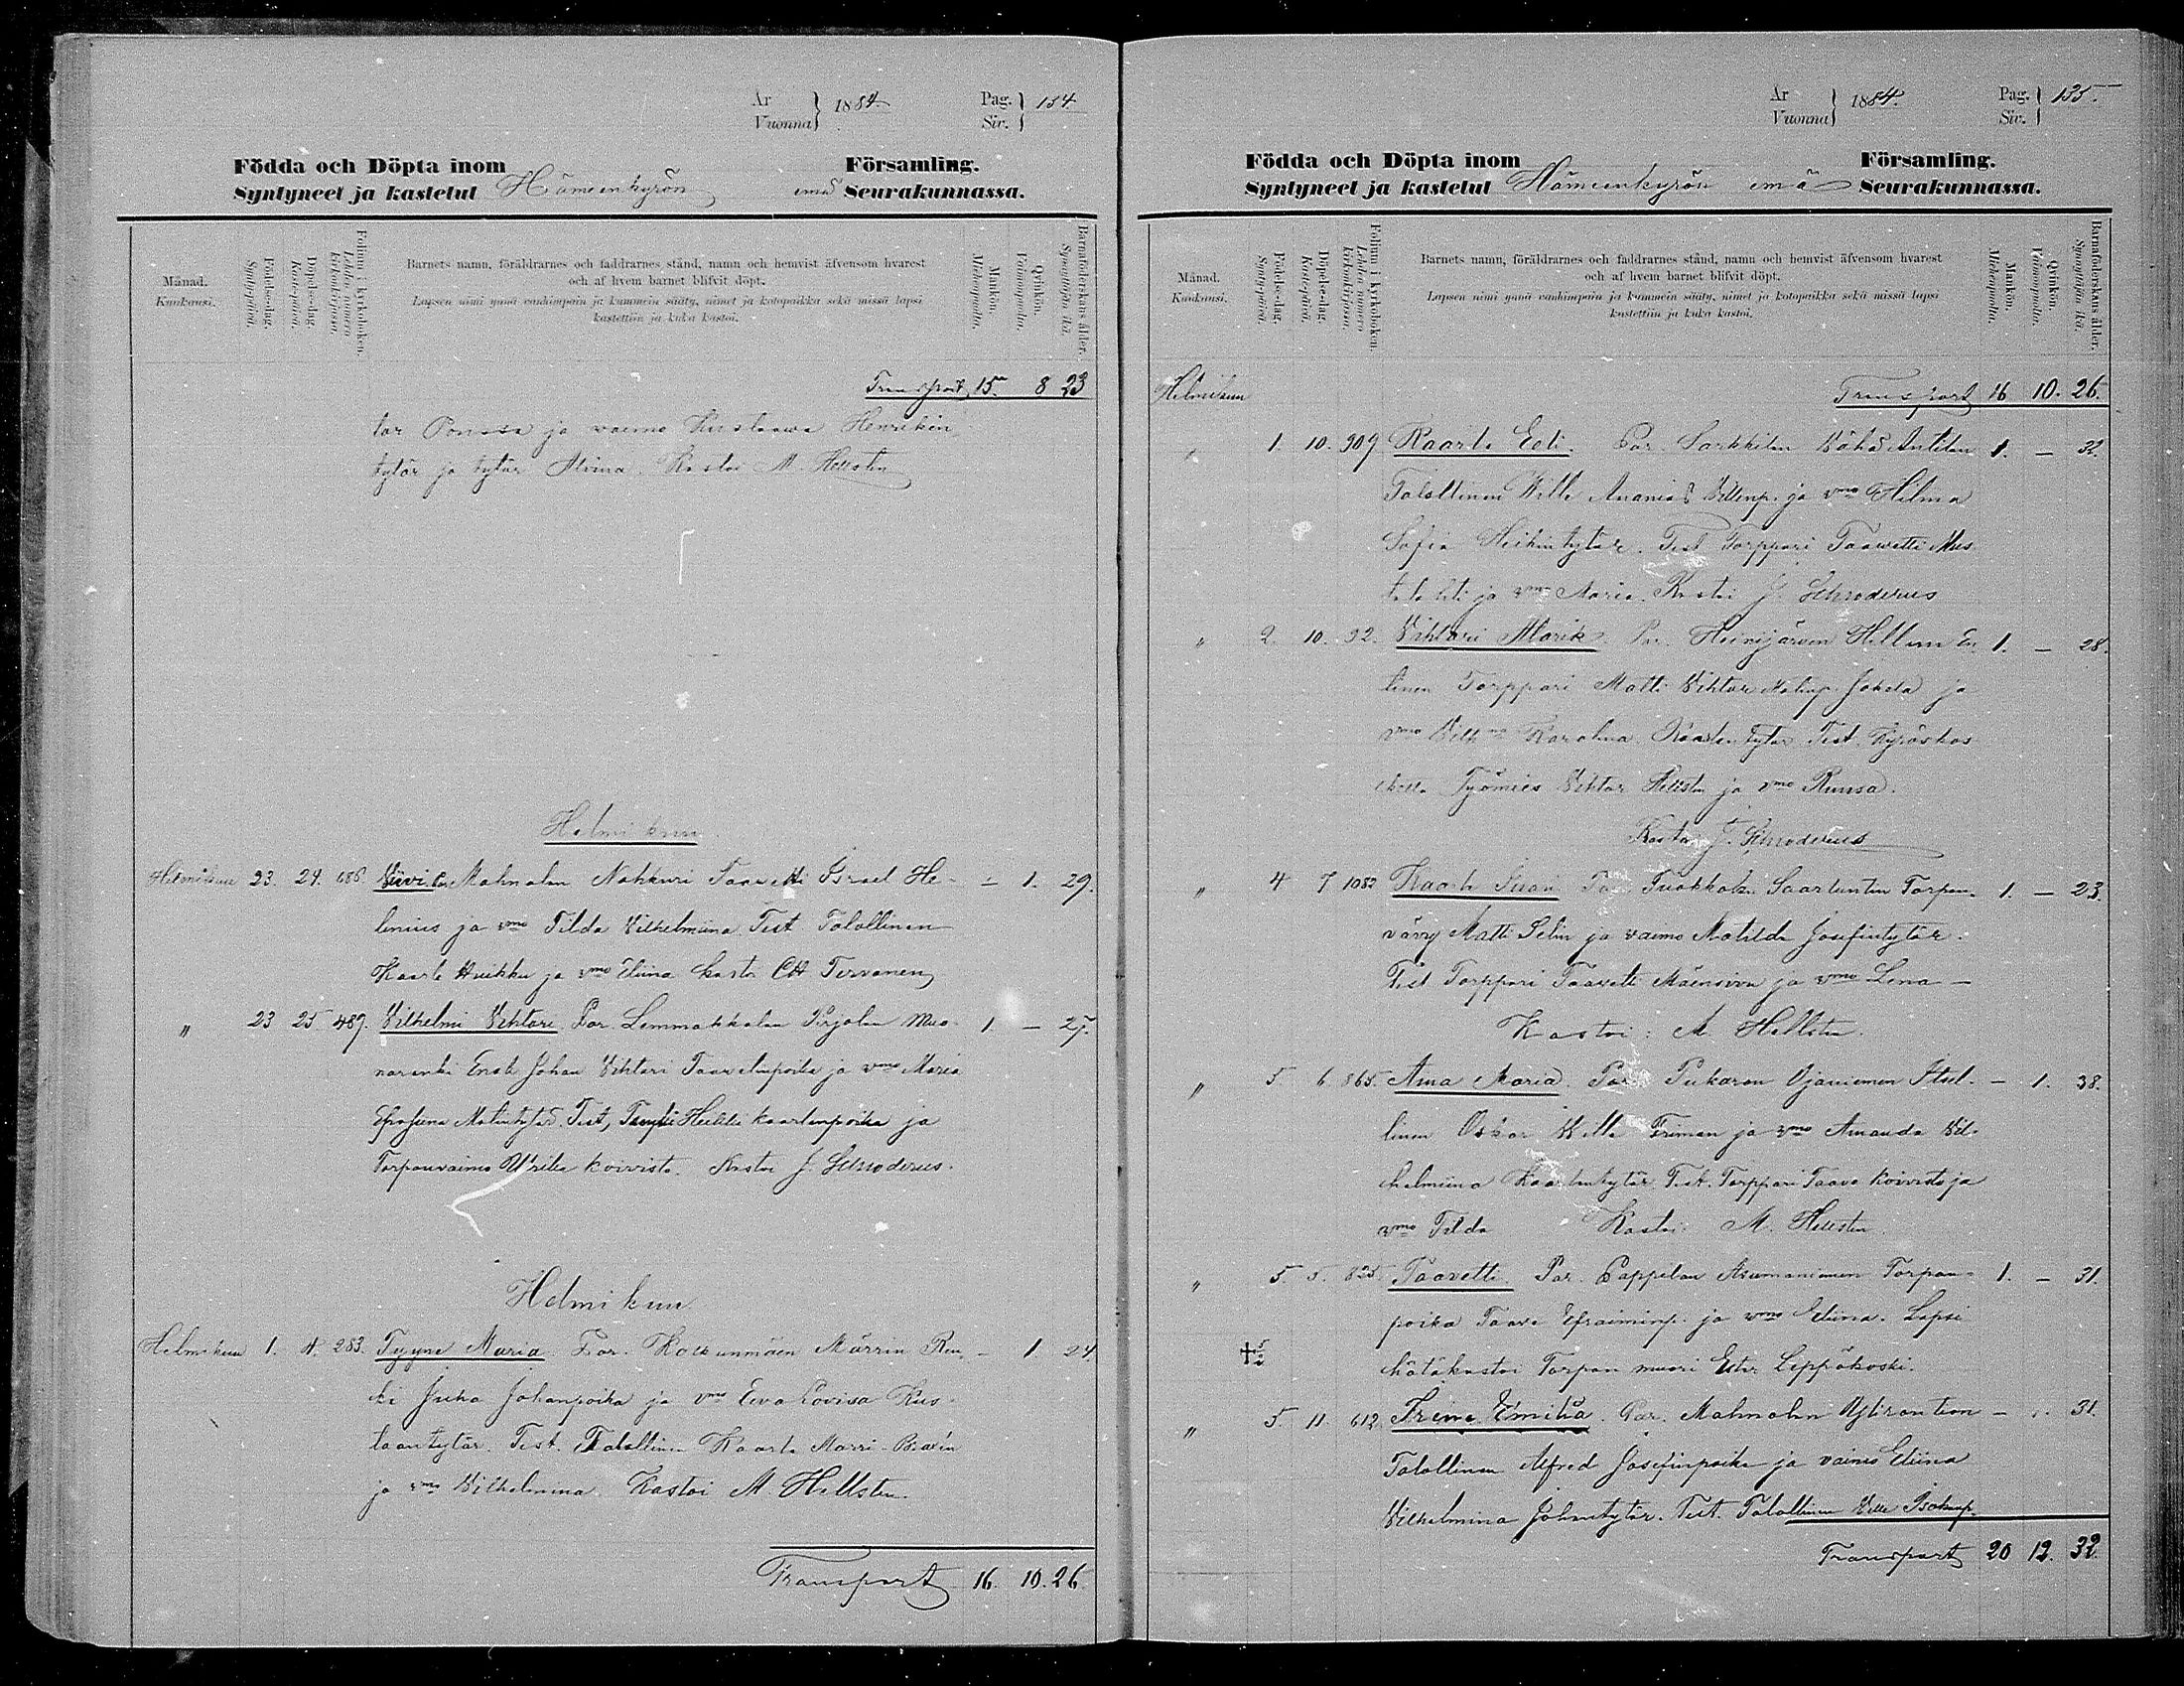 År
Vuonna } 1884.
Pag.
Siv. } 134
Födda och Döpta inom Församling.
Syntyneet ja kastetut Hämeenkyrön emä Seurakunnassa.
Månad.
Kuukausi.
Födelse-dag.
Syntymäpäivä.
Döpelse-dag.
Kastepäivä.
Folium i kyrkoboken.
Lehden numero kirkonkirjassa.
Barnets namn, föräldrarnes och faddrarnes stånd, namn och hemvist äfvensom hvarest
och af hvem barnet blifvit döpt.
Lapsen nimi ynnä vanhimpain ja kummein sääty, nimet ja kotopaikka sekä missä lapsi
kastettiin ja kuka kastoi.
Mankön.
Miehenpuolta.
Qvinkön.
Vaimonpuolta.
Barnaföderskans ålder.
Synnyttäjän ikä.
Transport 15. 8 23
tar Ponssa ja vaimo Kustaawa Henrikin
tytär ja tytär Alvina. Kastoi M. Hellsten
Helmikuu
Helmikuu 23. 24. 686. Siivi. Par Mahnalan Nahkuri Taavetti Israel He- – 1. 29.
lenius ja vmo Tilda Vilhelmiina Test Talollinen
Kaarle Huikku ja vmo Eliina kastoi Tervonen
" 23 25 489. Vilhelmi Vihtori Par. Lemmakkalan Pirjolan Muo- 1. – 27.
narenki Enok Johan Vihtori Taavetinpoika ja vmo Maria
Efrosina Matintytär. Test, Heikki kaarlenpoika ja
Torpanvaimo Ulrika koivisto. Kastoi J. Schroderus.
Helmikuu
Helmikuu 1. 4. 283. Tyyne Maria. Par. Kostunmäen Märrin Ren- – 1 24.
ki Juha Johanpoika ja vmo Eeva Lovisa Kus-
taantytär. Test. Talollinen Kaarle Marri-
ja vmo Vilhelmina. Kastoi M. Hellsten.
Transport 16. 10. 26.
År
Vuonna } 1884.
Pag.
Siv. } 135.
Födda och Döpta inom Församling.
Syntyneet ja kastetut Hämeenkyrön emä Seurakunnassa.
Månad.
Kuukausi.
Födelse-dag.
Syntymäpäivä.
Döpelse-dag.
Kastepäivä.
Folium i kyrkoboken.
Lehden numero kirkonkirjassa.
Barnets namn, föräldrarnes och faddrarnes stånd, namn och hemvist äfvensom hvarest
och af hvem barnet blifvit döpt.
Lapsen nimi ynnä vanhimpain ja kummein sääty, nimet ja kotopaikka sekä missä lapsi
kastettiin ja kuka kastoi.
Mankön.
Miehenpuolta.
Qvinkön.
Vaimonpuolta.
Barnaföderskans ålder.
Synnyttäjän ikä.
Helmikuu Transport 16 10. 26.
" 1. 10. 909 Kaarle Eeli. Par. Sarkkilan Vähä Antilan 1. – 32.
Talollinen Ville Ananias Villenp. ja vmo Hilma
Sofia Heikintytär. Test Torppari Taavetti Mus
talahti ja vmo Maria. Kastoi J. Schroderus
" 2. 10. 92. Vihtori Alarik Par. Heinijärven Hillun 1. – 28.
linen Torppari Matti Vihtor Matinp. Jokela ja
vmo Karolina Kaarlentytär Test. Kyröskos
kella Työmies Vihtor Hellsten ja vmo Ruusa.
Kastoi J. Schroderus
" 4 7 1082 Kaarle Par. Tuokkolan Saartentin Torpan- 1. – 23.
vävy Matti Selin ja vaimo Matilda Josefintytär.
Test Torppari Taavetti Mäensivu ja vmo Lena –
Kastoi: M. Hellsten.
" 5 6. 865. Aina Maria. Par. Pukaran Ojaniemen Itsel- – 1. 38.
linen Oskar Ville Friman ja vmo Amanda Vil-
helmiina Kaarlentytär. Test. Torppari Taavo Koivisto ja
vmo Tilda Kastoi. M. Hellsten.
" 5. 5. 825. Taavetti. Par. Pappilan Asumaniemen Torpan- 1. – 31.
poika Taave Efraiminp. ja vmo Eliina. Lapsi
hätäkastoi Torpan muori Ester Leppäkoski.
" 5. 11. 612 Irene Emilia. Par. Mahnalan – 1. 31.
Talollinen Alfred Josefinpoika ja vaimo Eliina
Vilhelmina Johantytär. Test. Talollinen Ville Isakinp.
Transport 20 12. 32.